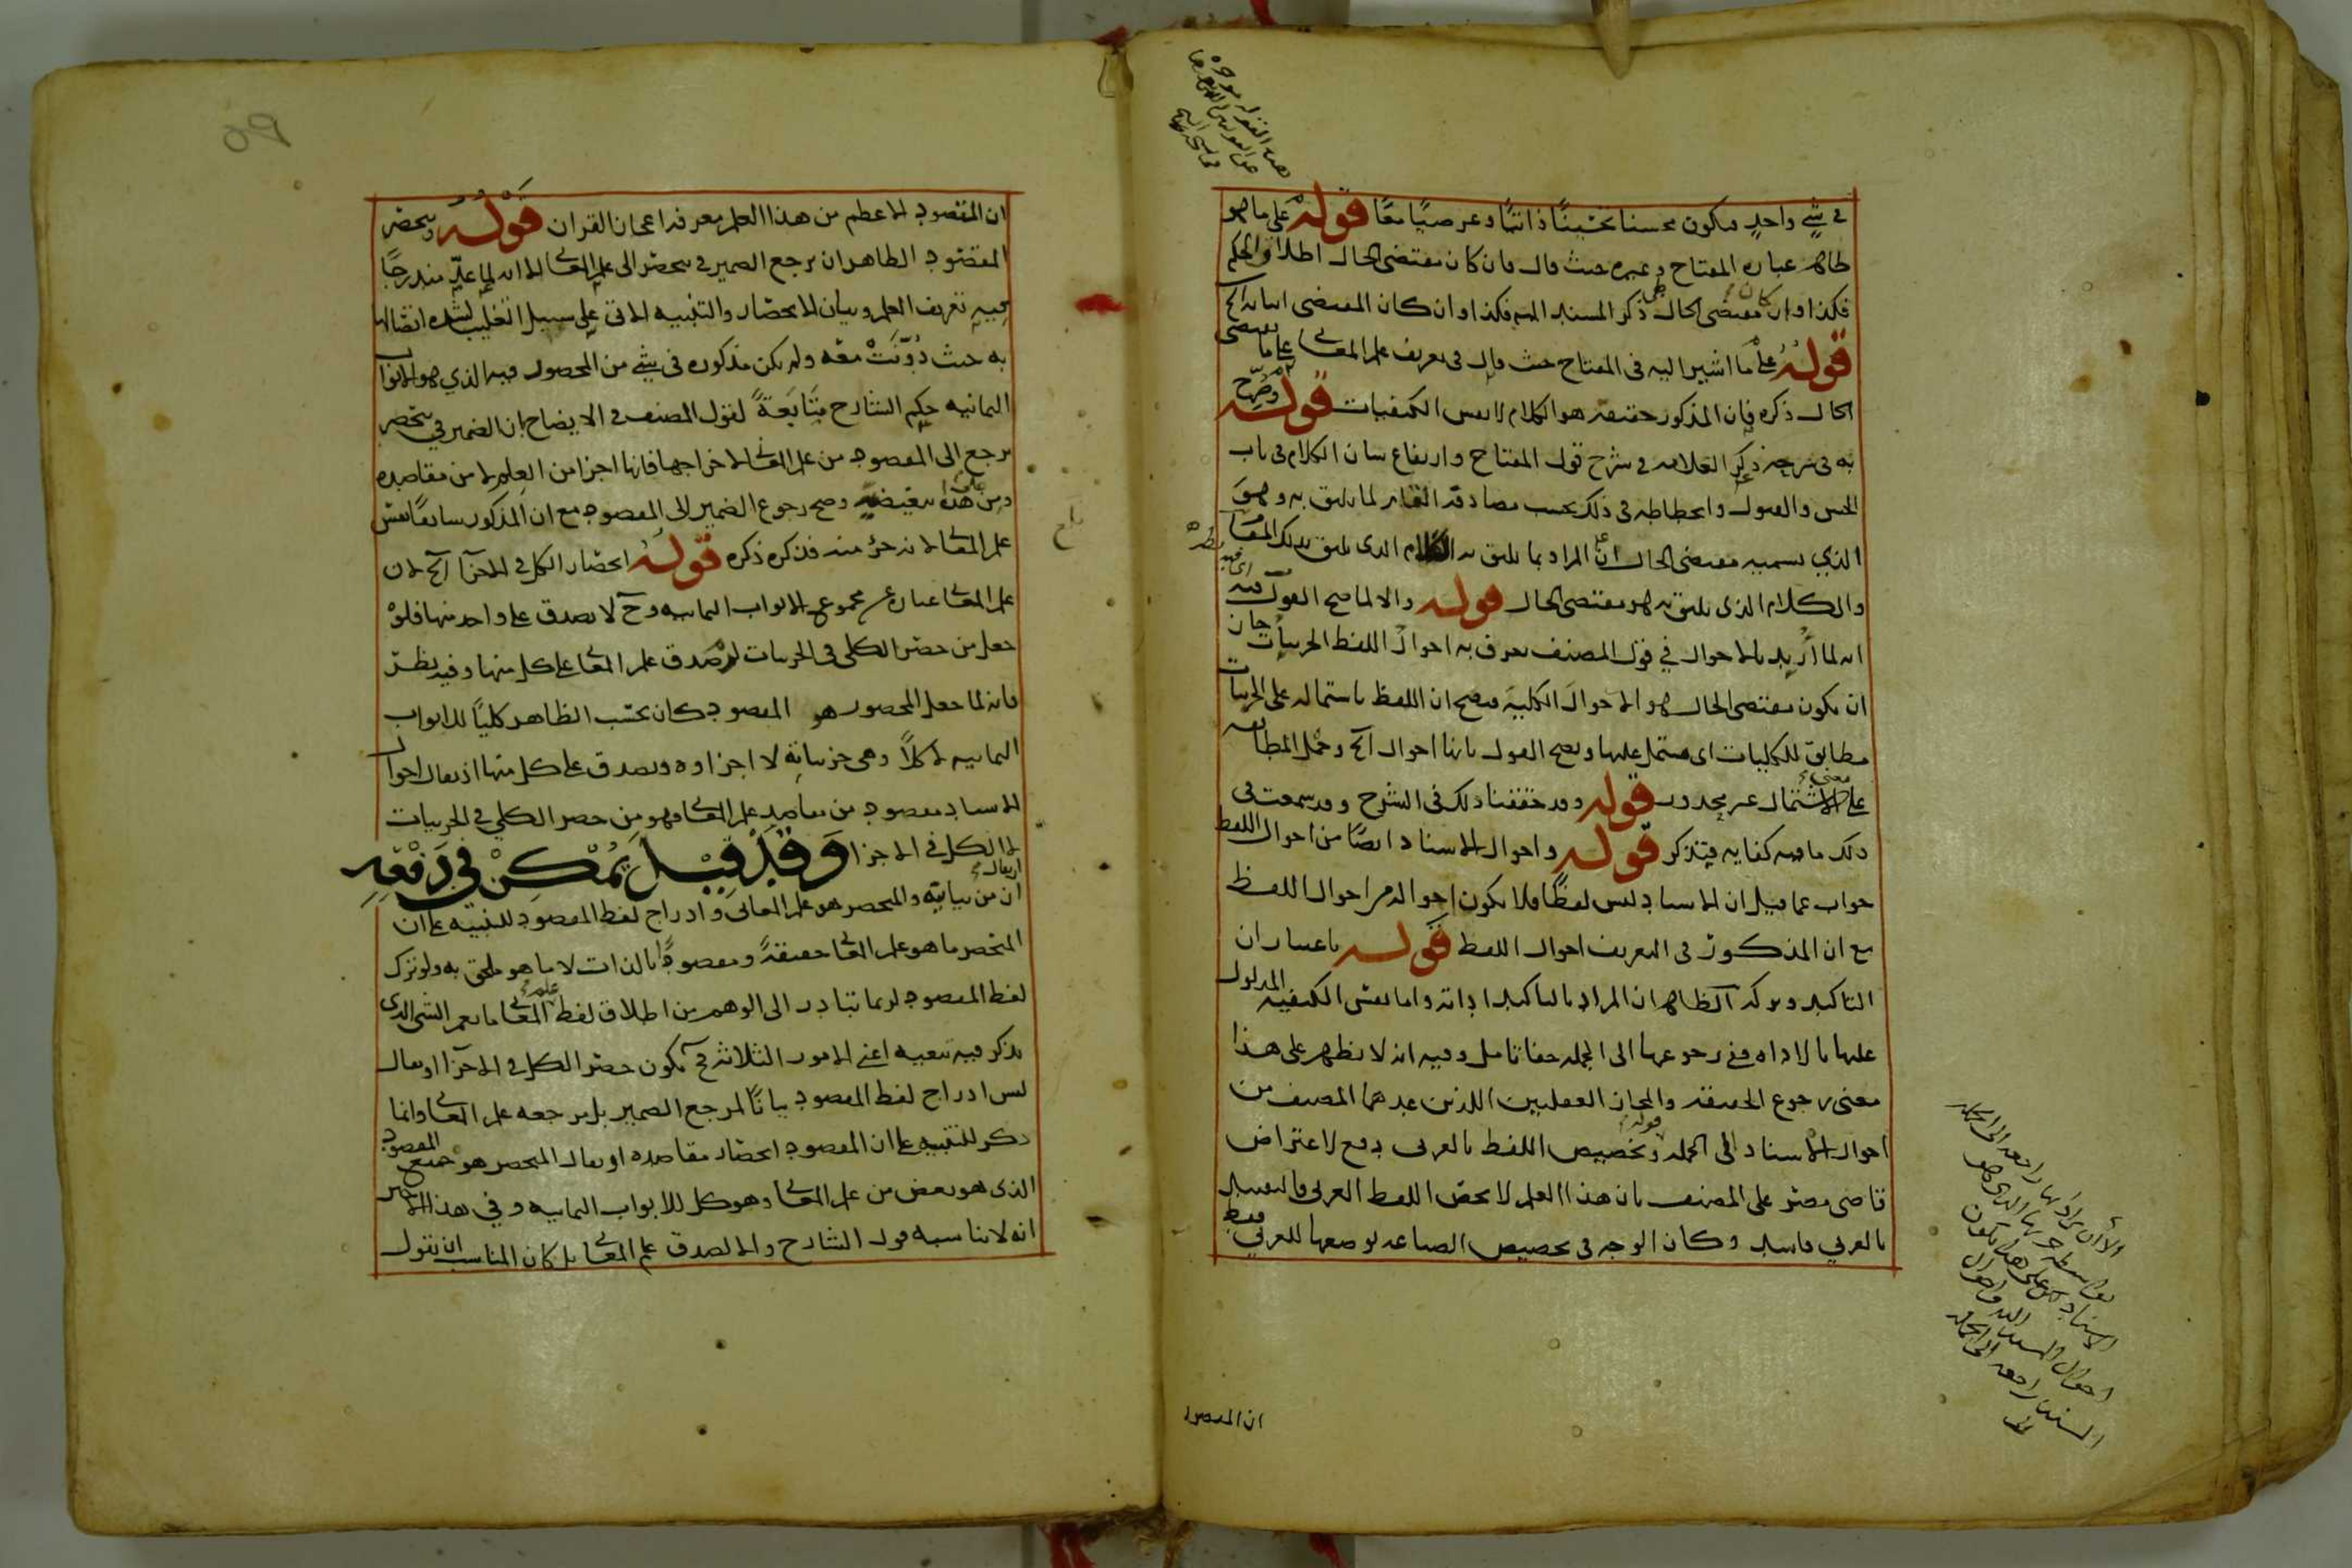 في شيء واحد فيكون محسنا تحسينًا ذاتيًا وعرضيًا معًا قوله على ما هو
ظاهر عبارة المفتاح وغيره حيث قال فان كان مقتضى الحال اطلاق الحكم
فكذا وان كان مقتضى الحال طي ذكر المسند اليه فكذا وان كان المقتضى اثباته الخ
قوله على ما اشير اليه في المفتاح حيث قال في تعريف علم المعاني على ما يقتضى
الحال ذكره فان المذكور حقيقة هو الكلام لا نفس الكيفيات قوله وصرح
به في شرحه ذكر العلامة في شرح قول المفتاح وارتفاع شان الكلام في باب
الحسن والقبول وانحطاطه في ذلك بحسب مصادقة المقام لما يليق به وهو
الذي نسميه مقتضى الحال ان المراد بما يليق به الكلام الذي يليق بذلك المقام
والكلام الذي يليق به هو مقتضى الحال قوله والا لما صح القول فيه
انه لما اريد بالاحوال في قول المصنف يعرف به احوال اللفظ الجزييات جاز
ان يكون مقتضى الحال هو الاحوال الكلية فيصح ان اللفظ باشتماله على الجزييات
مطابق للكليات اى مشتمل عليها ويصح القول بانها احوال الخ وحمل المطابقة
على معنى الاشتمال غير محذور قوله وقد حققنا ذلك في الشرح وقد سمعت في
ذلك ما فيه كفاية فتذكر قوله واحوال الاسناد ايضًا من احوال اللفظ
جواب عما قيل ان الاسناد ليس لفظًا فلا يكون احواله من احوال اللفظ
مع ان المذكور في التعريف احوال اللفظ قوله باعتبار ان
التاكيد وتركه الظاهر ان المراد بالتاكيد اداته واما نفس الكيفية المدلول
عليها بالاداة ففي رجوعها الى الجملة خفا تامل وفيه انه لا يظهر على هذا
معنى رجوع الحقيقة والمجاز العقليين اللذين عدهما المصنف من
احوال الاسناد الى الجملة قوله وتخصيص اللفظ بالعربي دفع لاعتراض
قاضى مصر على المصنف بان هذا العلم لا يخص اللفظ العربي فالتقييد
بالعربي فاسد وكان الوجه في تخصيص الصناعة بوضعها للعربي فقط
ان المقصود
ان المقصود الاعظم من هذا العلم معرفة اعجاز القران قوله وينحصر
المقصود الظاهر ان يرجع الضمير في ينحصر الى علم المعاني الا انه لما عد مندرجًا
فيه تعريف العلم وبيان الانحصار والتنبيه الاتى على سبيل التغليب لشدة اتصالها
به حيث دونت معه ولم يكن مذكورة في شيء من المحصور فيه الذي هو الابواب
الثمانية حكم الشارح متابعة لقول المصنف في الايضاح ان الضمير في ينحصر
يرجع الى المقصود من علم المعاني لاخراجها فانها اجزا من العلم لا من مقاصده
ومن على هذه تبعيضية وصح رجوع الضمير الى المقصود مع ان المذكور سابقا نفس
علم المعاني لانه جزء منه فذكره ذكره قوله انحصار الكل في الاجزا الخ لان
علم المعاني عبارة عن مجموع الابواب الثمانية وح لا يصدق على واحد منها فلو
جعل من حصر الكلي في الجزييات لصدق علم المعاني على كل منها وفيه نظر
فانه لما جعل المحصور هو المقصود كان بحسب الظاهر كليًا للابواب
الثمانية لا كلاً وهى جزئياته لا اجزاوه ويصدق على كل منها اذ يقال احوال
الاسناد مقصود من مقاصد علم المعاني فهو من حصر الكلي في الجزييات
لا الكل في الاجزا وقد قيل يمكن في دفعه
ان يقال ان من بيانية والمنحصر هو علم المعاني وادراج لفظ المقصود للتنبيه على ان
المنحصر ما هو علم المعاني حقيقةً ومقصودًا بالذات لا ما هو ملحق به ولو ترك
لفظ المقصود لربما تبادر الى الوهم من اطلاق لفظ علم المعاني ما يعم الشي الذي
يذكر فيه تبعية اعني الامور الثلاثة فح يكون حصر الكل في الاجزا او يقال
ليس ادراج لفظ المقصود بيانًا لمرجع الضمير بل مرجعه علم المعاني وانما
ذكر للتنبيه على ان المقصود انحصار مقاصده او يقال المنحصر هو جميع المقصود
الذي هو بعض من علم المعاني وهو كل للابواب الثمانية وفي هذا الاخير
انه لا يناسبه قول الشارح والا لصدق علم المعاني بل كان المناسب ان يقول